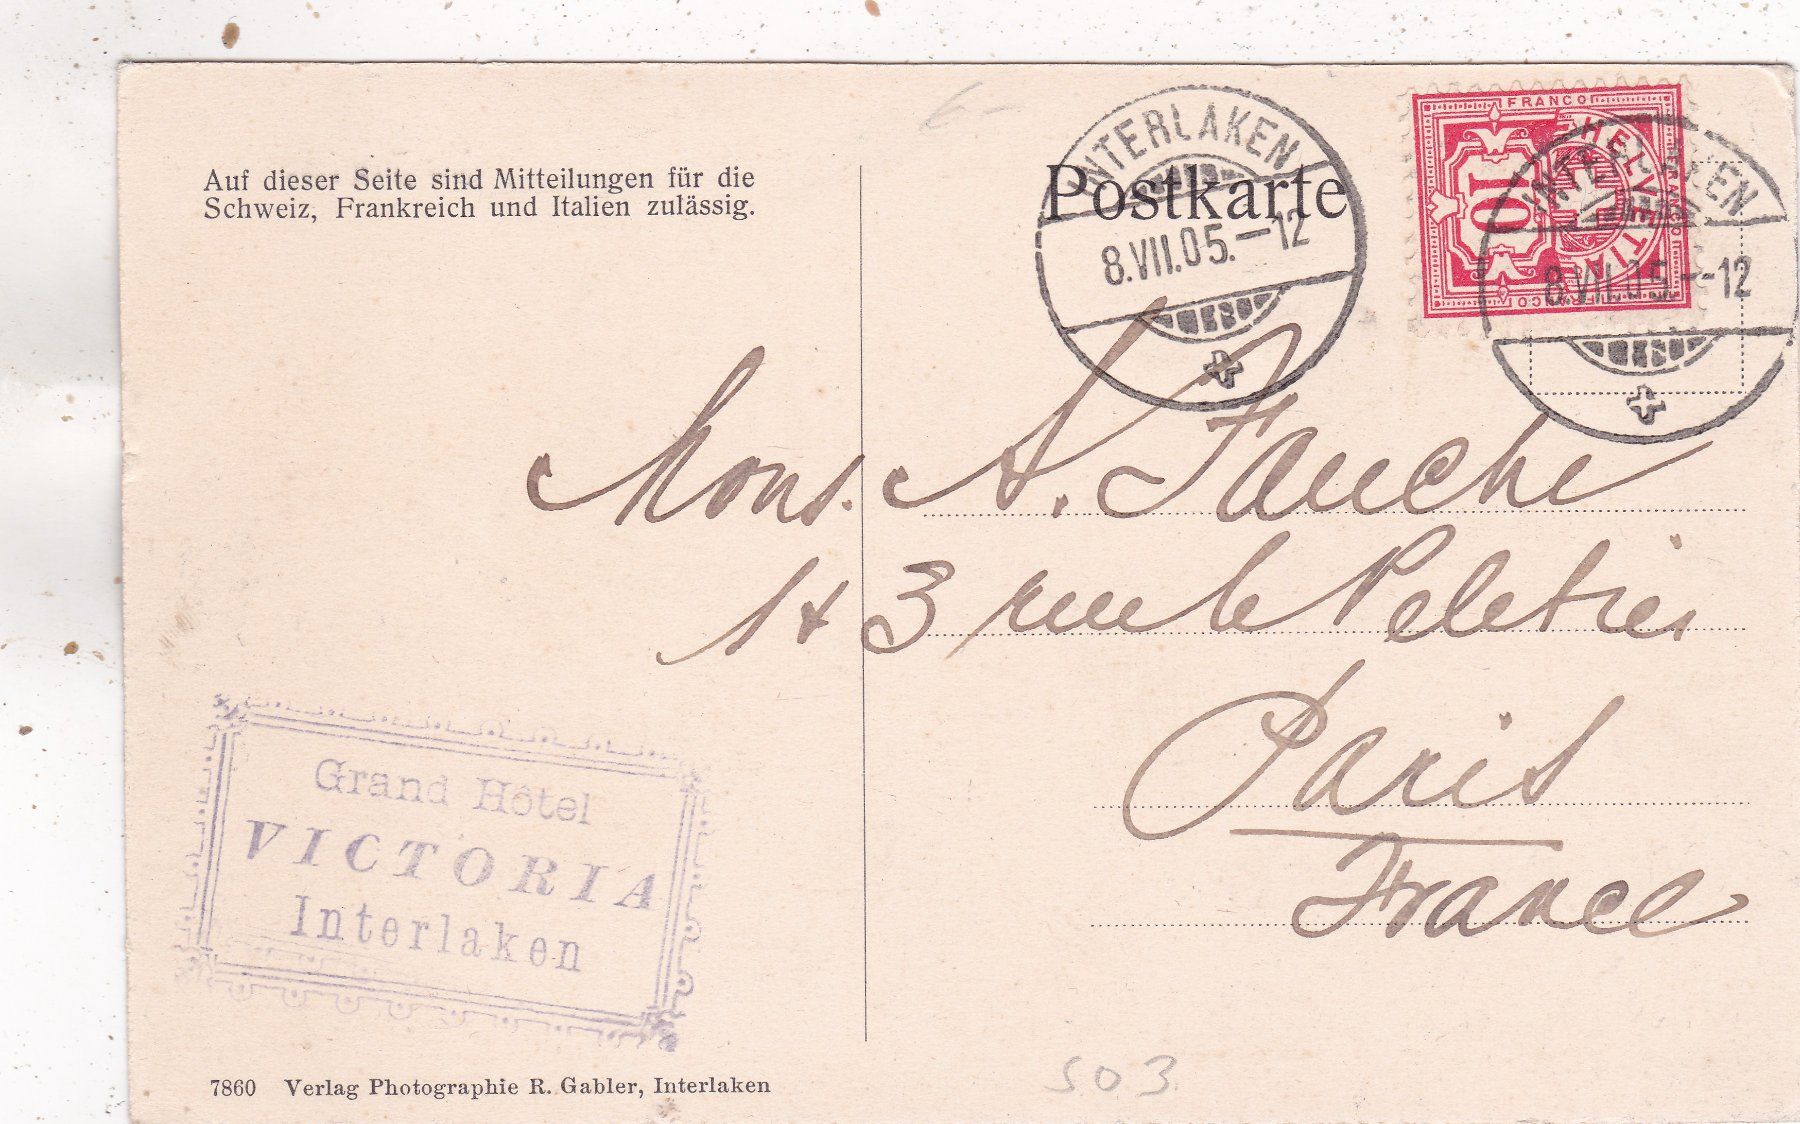 Auf dieser Seite sind Mitteilungen für die
Schweiz, Frankreich und Italien zulässig.
Postkarte
INTERLAKEN
8.VII.05.-12
FRANCO
HELVETIA
10
FRANCO
FRANCO
INTERLAKEN
8.VII.05.-12
Mons. A. Fauche
1 & 3 rue le Peletier
Paris
France
Grand Hôtel
VICTORIA
Interlaken
7860 Verlag Photographie R. Gabler, Interlaken
S.O.3